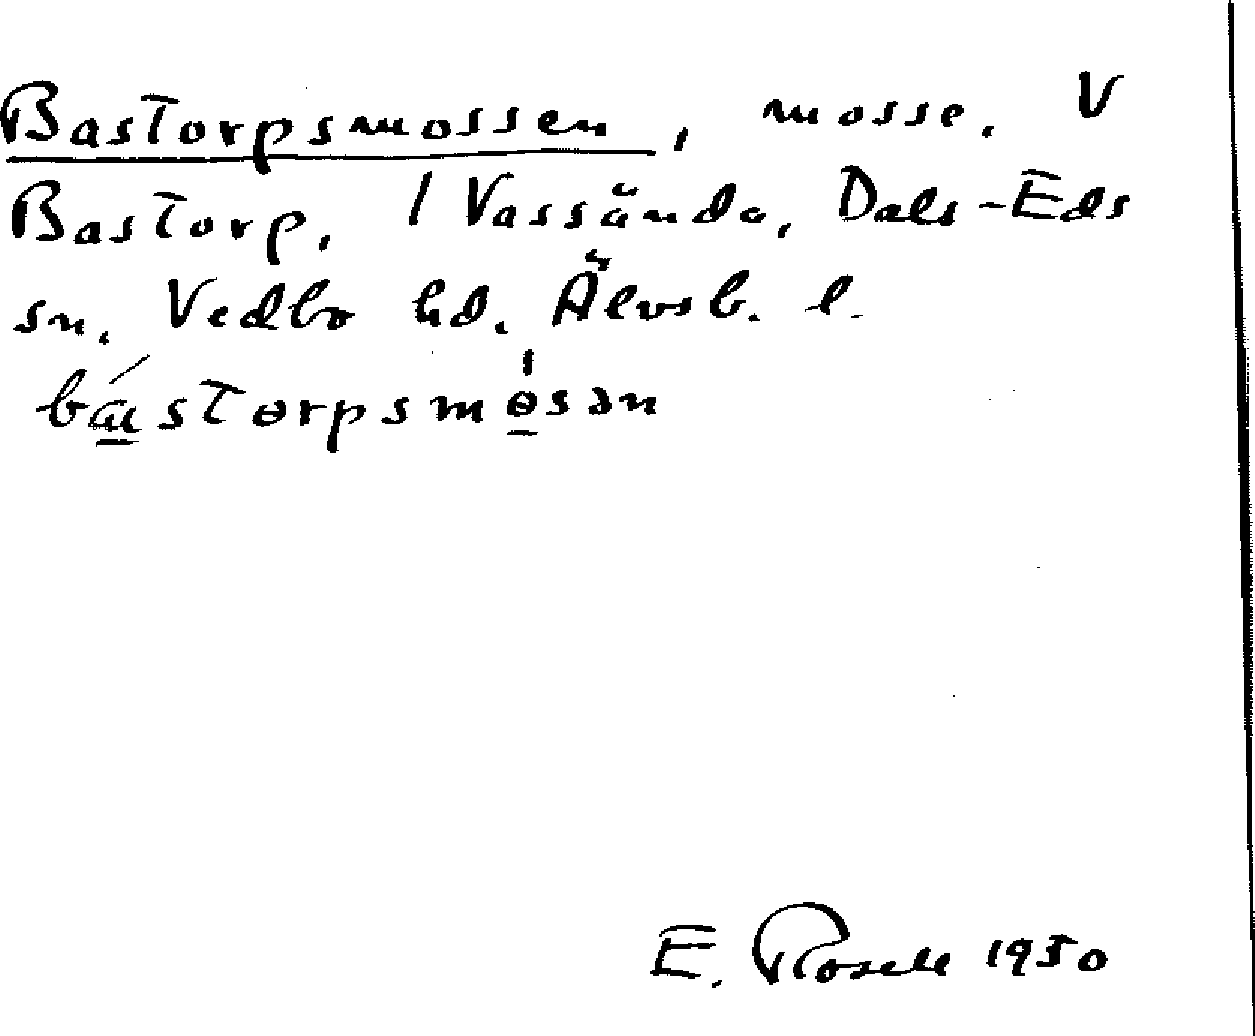 Bastorpsmossen, mosse. V
Bastorp, / Vassända, Dals-Eds
sn, Vedbo hd. Älvsb. l.
bástorpsmɵ̀sən
E. Rosell 1950